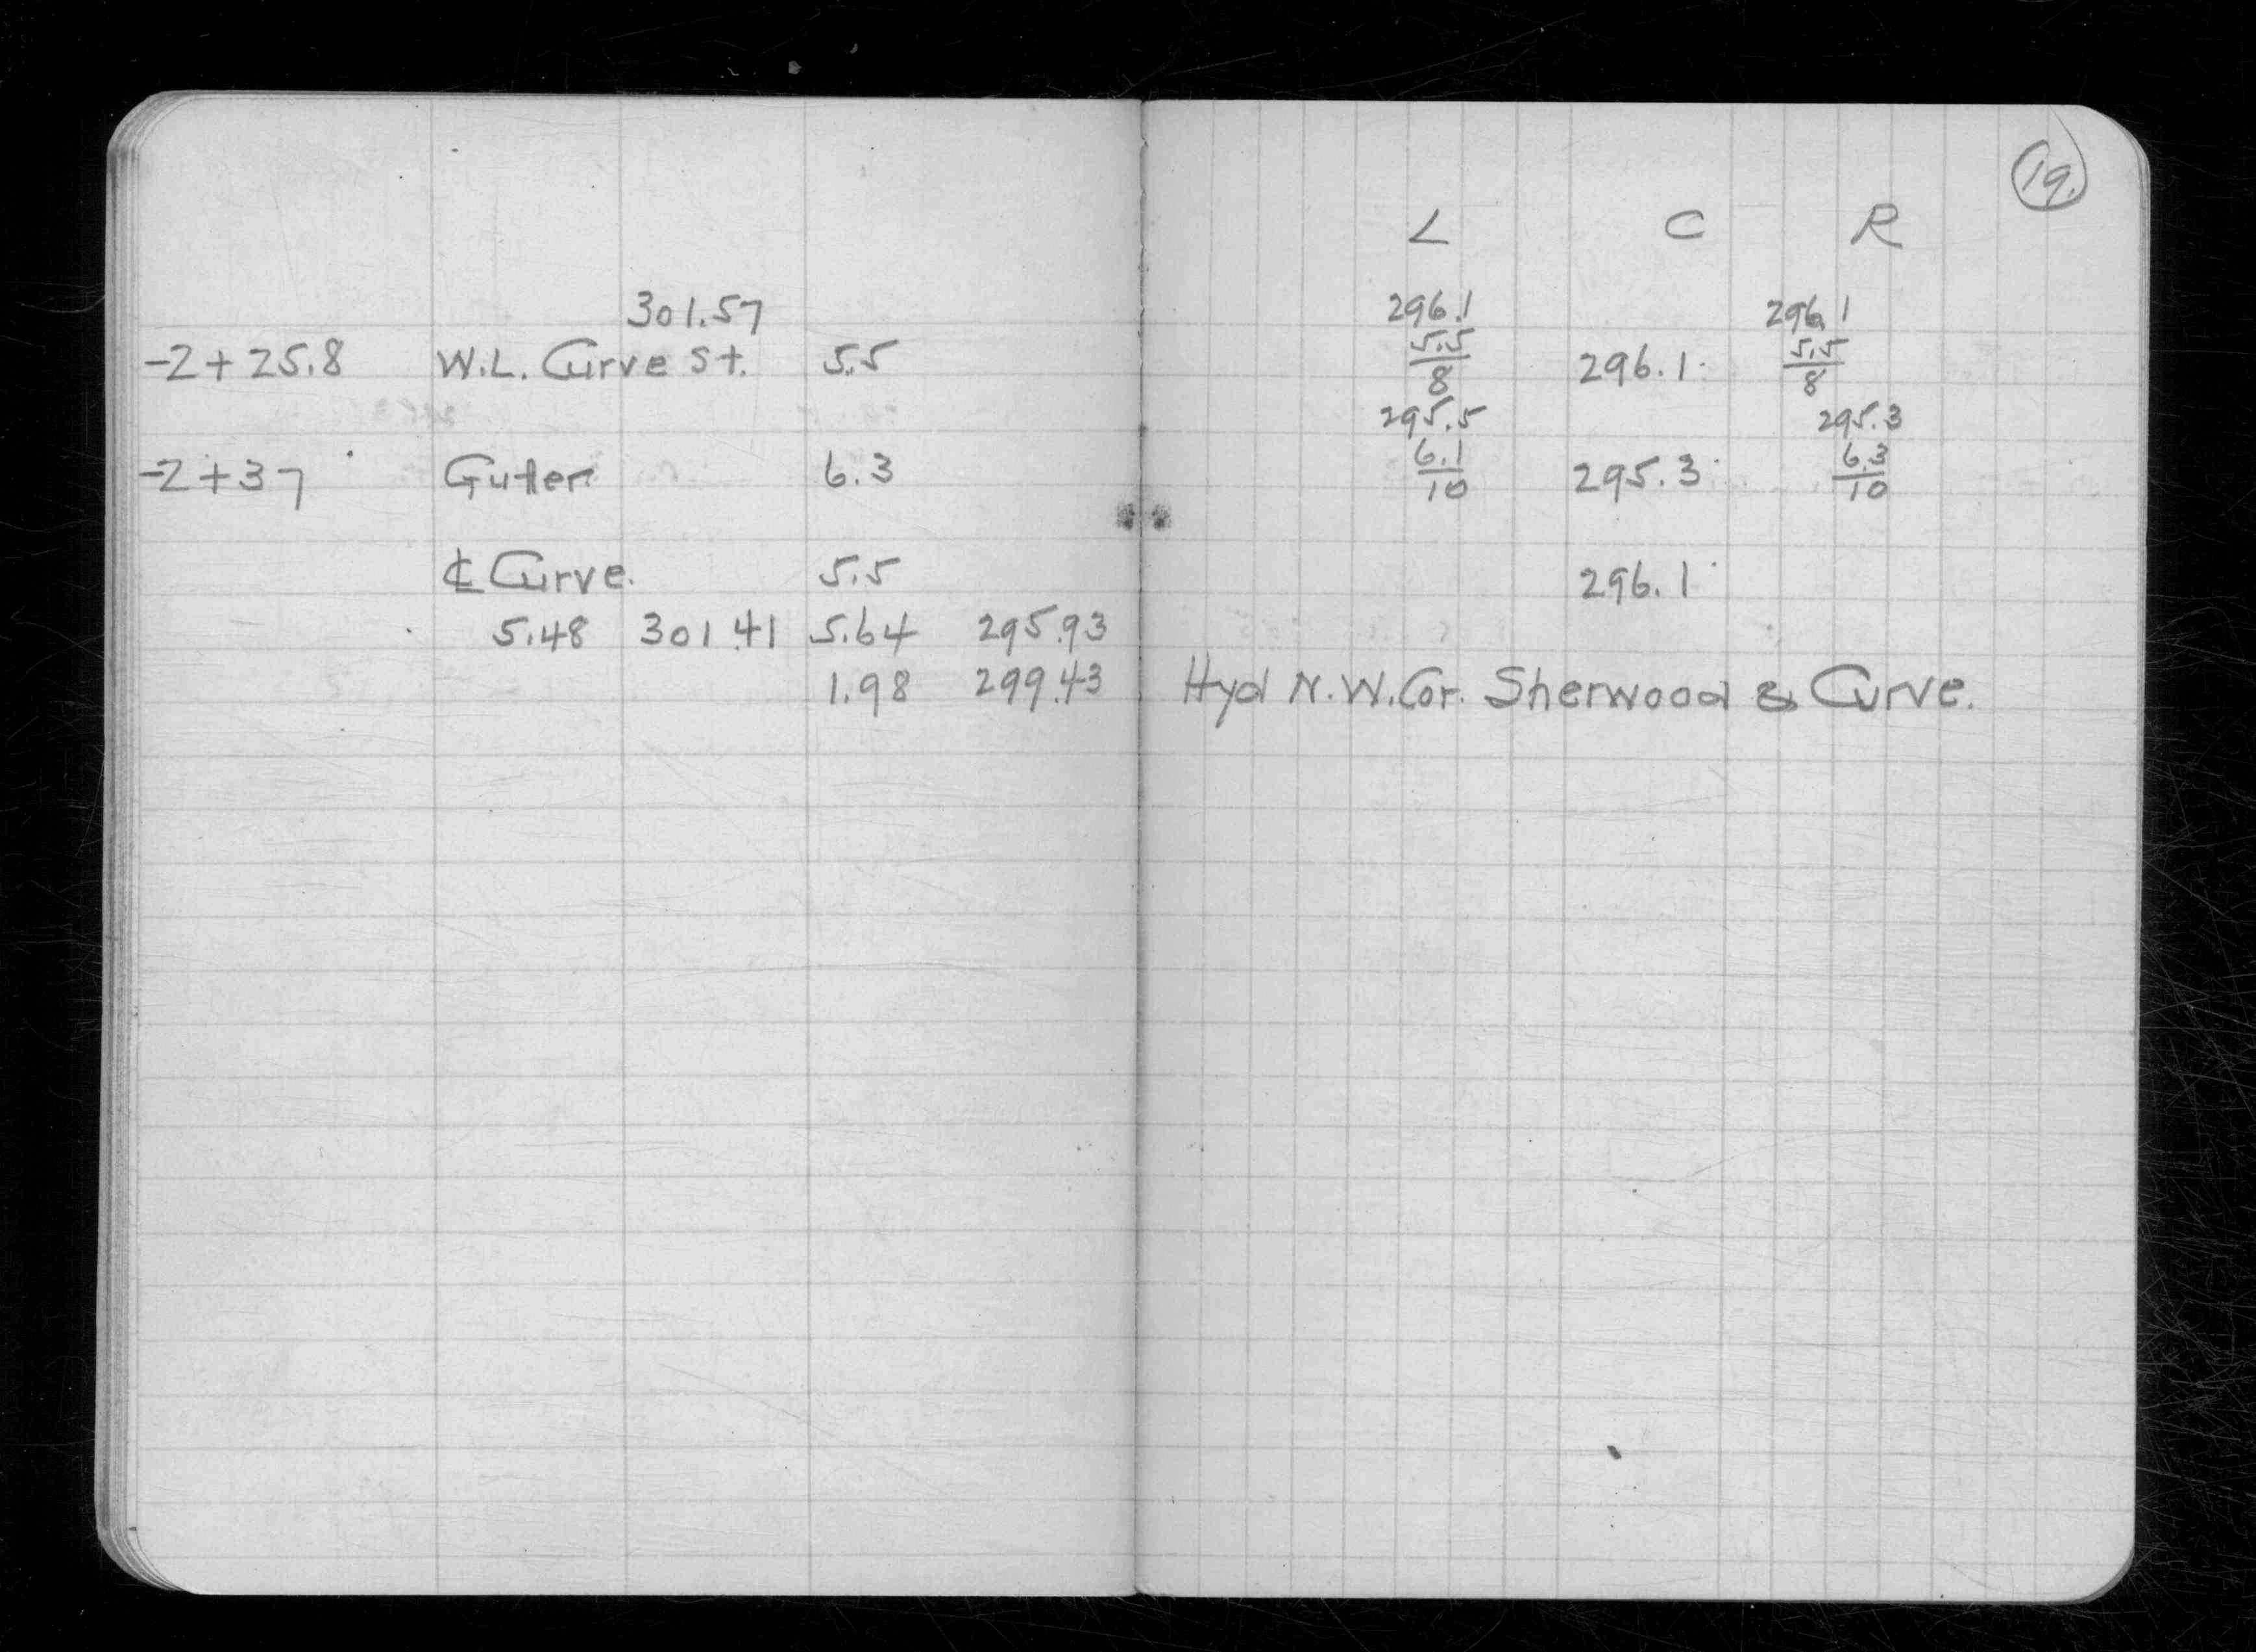 19.
L C R
301.57 296.1 296.1
-2+25.8 W.L. Curve St. 5.5 5.5/8 296.1 5.5/8
295.5 295.3
-2+37 Gutter 6.3 6.1/10 295.3 6.3/10
℄ Curve. 5.5 296.1
5.48 301.41 5.64 295.93
1.98 299.43 Hyd N.W. Cor. Sherwood & Curve.